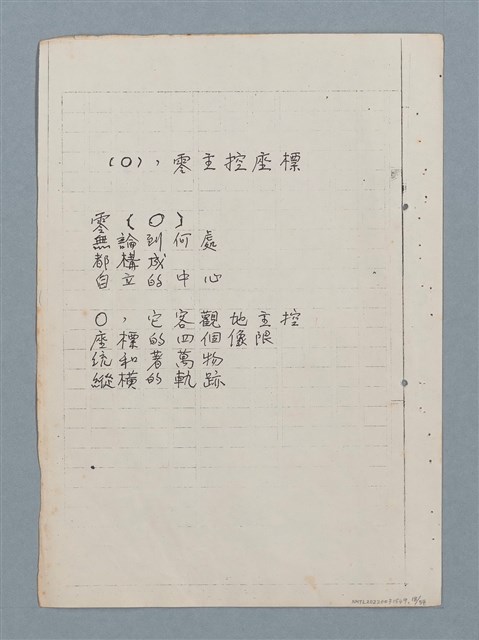 (〇),零主控座標
零{〇}
無論到何處
都構成
自立的中心
〇,它客觀地主控
座標的四個像限
統和著萬物
縱橫的軌跡